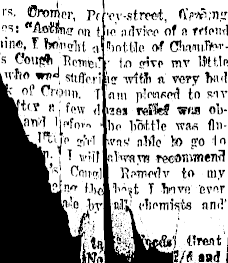 rs. Cromer, Percy-street,
es: "Acting on the advice of a friend
ine, I bought a bottle of Chamber-
s Cough Remedy to give my little
who was suffering with a very bad
k of Croup. I am pleased to say
after a few doses relief was ob-
and before the bottle was fin-
little girl was able to go to
I will always recommend
Cough Remedy to my
being the best I have ever
ale by all chemists and
Great
2/6 and